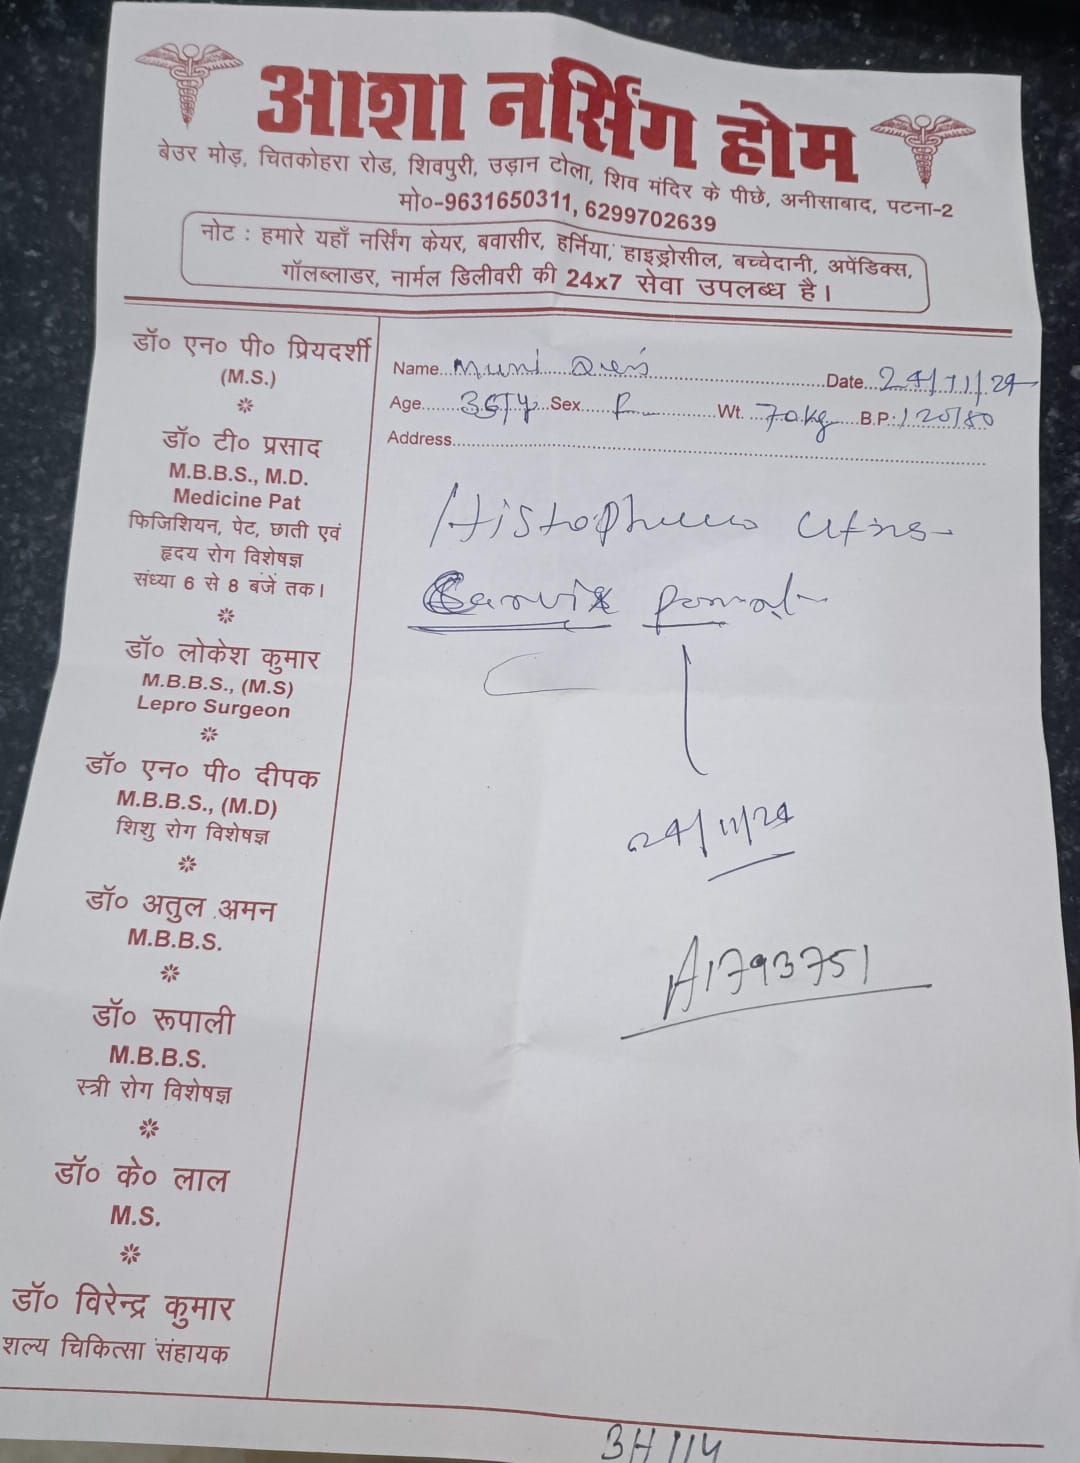 आशा नर्सिंग होम
बेउर मोड़, चितकोहरा रोड, शिवपुरी, उड़ान टोला, शिव मंदिर के पीछे, अनीसाबाद, पटना-2
मो०-9631650311, 6299702639
नोट : हमारे यहाँ नर्सिंग केयर, बवासीर, हर्निया, हाइड्रोसील, बच्चेदानी, अपेंडिक्स,
गॉलब्लाडर, नार्मल डिलीवरी की 24x7 सेवा उपलब्ध है।
डॉ० एन० पी० प्रियदर्शी
(M.S.)
डॉ० टी० प्रसाद
M.B.B.S., M.D.
Medicine Pat
फिजिशियन, पेट, छाती एवं
हृदय रोग विशेषज्ञ
संध्या 6 से 8 बजें तक।
डॉ० लोकेश कुमार
M.B.B.S., (M.S)
Lepro Surgeon
डॉ० एन० पी० दीपक
M.B.B.S., (M.D)
शिशु रोग विशेषज्ञ
डॉ० अतुल अमन
M.B.B.S.
डॉ० रूपाली
M.B.B.S.
स्त्री रोग विशेषज्ञ
डॉ० के० लाल
M.S.
डॉ० विरेन्द्र कुमार
शल्य चिकित्सा संहायक
Name Muni Date 24/11/24
Age Sex F Wt. 70kg B.P: 120/80
Address
24/11/24
A1793751
BH114